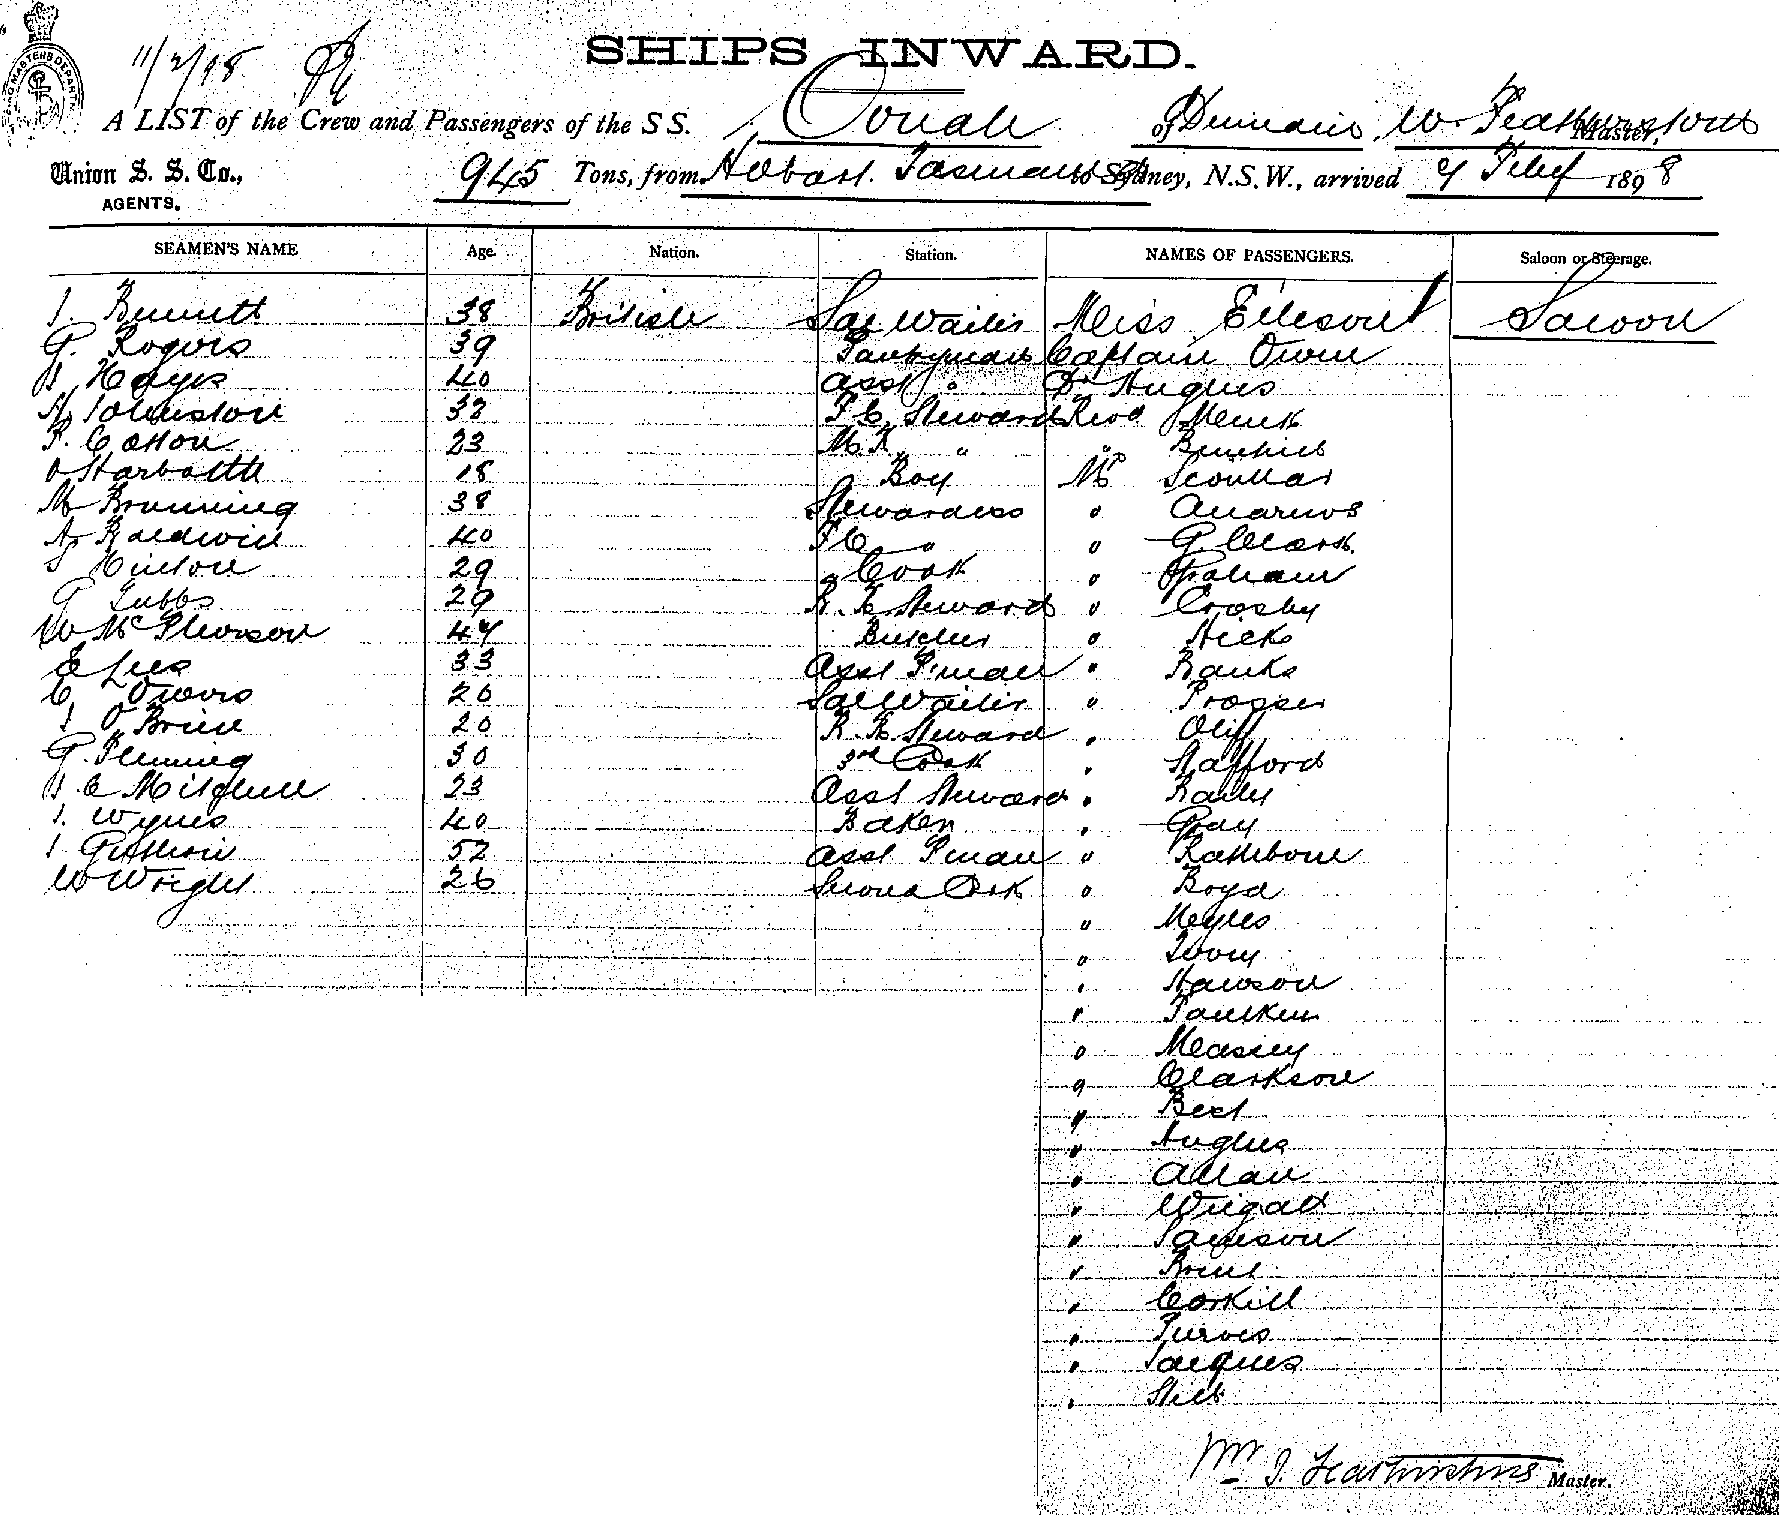 11/2/98
SHIPS INWARD.
A LIST of the Crew and Passengers of the S S. Oonah of Dunedin, W. Featherstone Master,
Union S. S. Co., AGENTS.
945 Tons, from Hobart. Tasmania to Sydney, N.S.W., arrived 9 Feby 1898
SEAMEN'S NAME Age. Nation. Station. NAMES OF PASSENGERS. Saloon or Steerage.
J. Bennett 38 British Sal Waiter Miss Saloon
G. Rogers 39 Pantryman Captain Owen
Hayes 40 Asst " Dr Hughes
Johnston 32 F C Steward Revd
P. Cotton 23 "
18 Boy Mr Scoullar
M Brunning 38 Stewardess "
A Baldwin 40 F C " " G. Clark
Hinton 29 Cook " Graham
G Tubbs 29 Steward " Crosby
W McPherson 47 Butcher " Hicks
E Lees 33 Asst P.man " Banks
C Owers 20 Sal Waiter " Prosser
J O Brien 20 Steward " Oliff
G. Fleming 30 3rd Cook " Stafford
J C Mitchell 23 Asst Steward " Bailey
J. Wynes 40 Baker " Gray
J Guthrie 52 Asst P.man " Rathbone
W Wright 26 Second Cook " Boyd
" Meyles
" Ivory
" Hawson
"
" Massey
" Clarkson
" Best
" Hughes
" Allan
" Wrigall
" Jameson
" Brent
" Corkill
" Purves
" Jacques
"
Wm J. Featherstone Master.